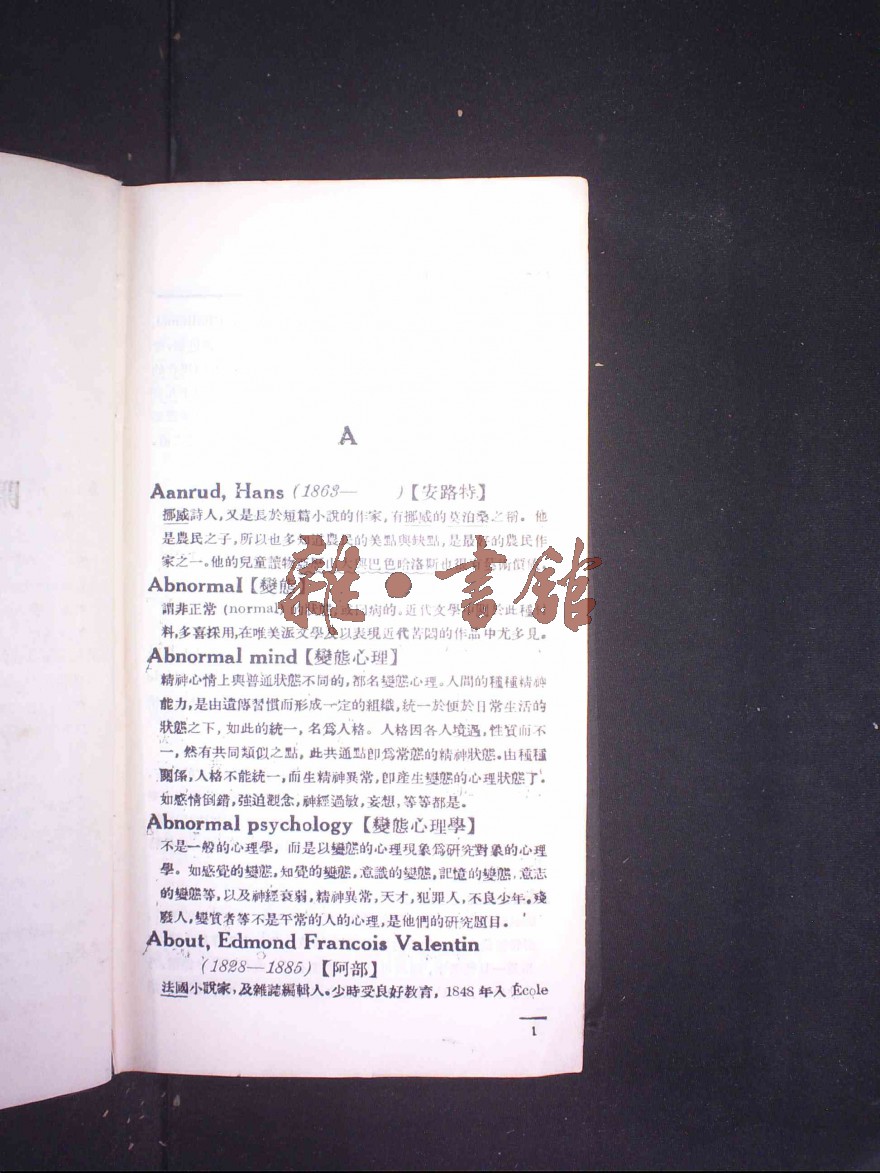 A
Aanrud, Hans (1863— )【安路特】
挪威詩人，又是長於短篇小說的作家，有挪威的莫泊桑之稱。他
是農民之子，所以也多知道農民的美點與缺點，是最 的農民作
家之一。他的兒童讀物 巴色哈洛斯也
Abnormal【變態】
謂非正常 (normal) 的狀態，或 病的。近代文學 於此種
料，多喜採用，在唯美派文學及以表現近代苦悶的作品中尤多見。
Abnormal mind【變態心理】
精神心情上與普通狀態不同的，都名變態心理。人間的種種精神
能力，是由遺傳習慣而形成一定的組織，統一於便於日常生活的
狀態之下，如此的統一，名爲人格。人格因各人境遇，性質而不
一，然有共同類似之點，此共通點卽爲常態的精神狀態。由種種
關係，人格不能統一，而生精神異常，卽產生變態的心理狀態了。
如感情倒錯，強迫觀念，神經過敏，妄想，等等都是。
Abnormal psychology【變態心理學】
不是一般的心理學，而是以變態的心理現象爲研究對象的心理
學。如感覺的變態，知覺的變態，意識的變態，記憶的變態，意志
的變態等，以及神經衰弱，精神異常，天才，犯罪人，不良少年。殘
廢人，變質者等不是平常的人的心理，是他們的研究題目。
About, Edmond Francois Valentin
(1828—1885)【阿部】
法國小說家，及雜誌編輯人。少時受良好教育，1848 年入 École
1
雜·書館